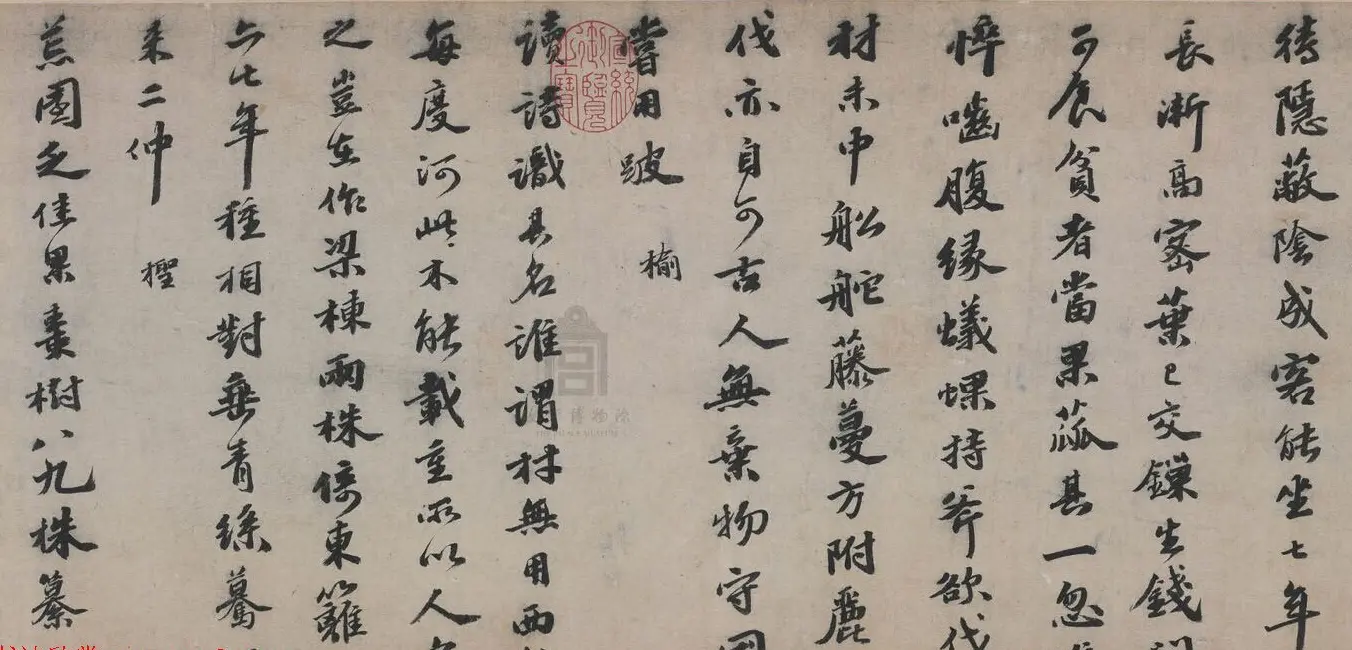 待隱蔽陰成客能坐七年
長漸高密葉已交鏁生錢
可食貧者當果蓏甚一忽
悴嚙腹緣蟻螺持斧欲伐
材未中船舵藤蔓方附麗
伐亦自可古人無棄物守國
嘗用跛 榆
讀詩識其名誰謂材無用西
每度河此木能載重所以人
之豈在作梁棟兩株倚東籬
亦此年種相對垂青綠
來二仲 檉
荒園乏佳果棗樹八九株纂
宣統御覽之寶